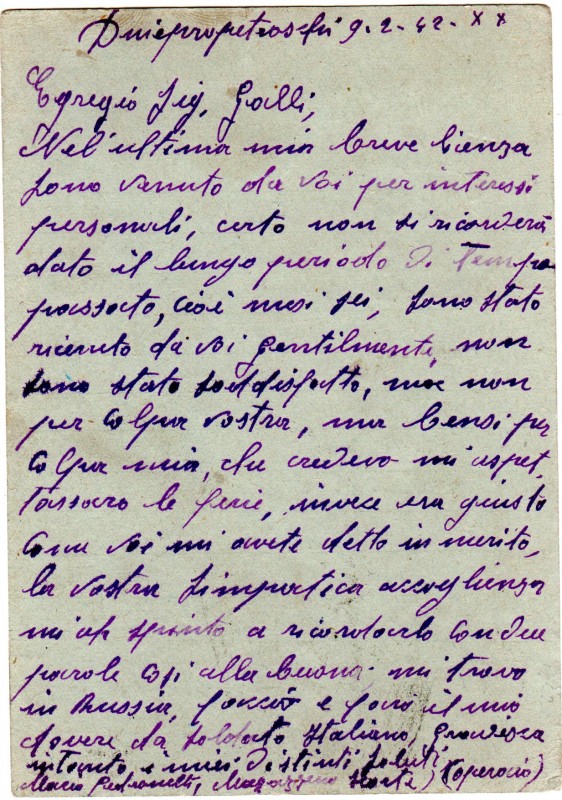 Dniepropetroschi 9-2-42-XX
Egregio Sig, Galli,
Nel'ultima mia breve licenza
sono venuto da voi per interessi
personali, certo non si ricorderà
dato il lungo periodo di tempo
passato, cioè mesi sei, sono stato
ricevuto da voi gentilmente, non
sono stato soddisfatto, ma non
per colpa vostra, ma bensi per
colpa mia, che credevo mi aspet,
tassaro le ferie, invece era giusto
come voi mi avete detto in merito,
la vostra simpatica accoglienza
mi à spinto a ricordarlo con due
parole così alla buona; mi trovo
in Russia, faccio e farò il mio
dovere da soldato Italiano, Gradisca
intanto i miei Distinti saluti
Mario Pedronetti, Magazzeno (operaio)